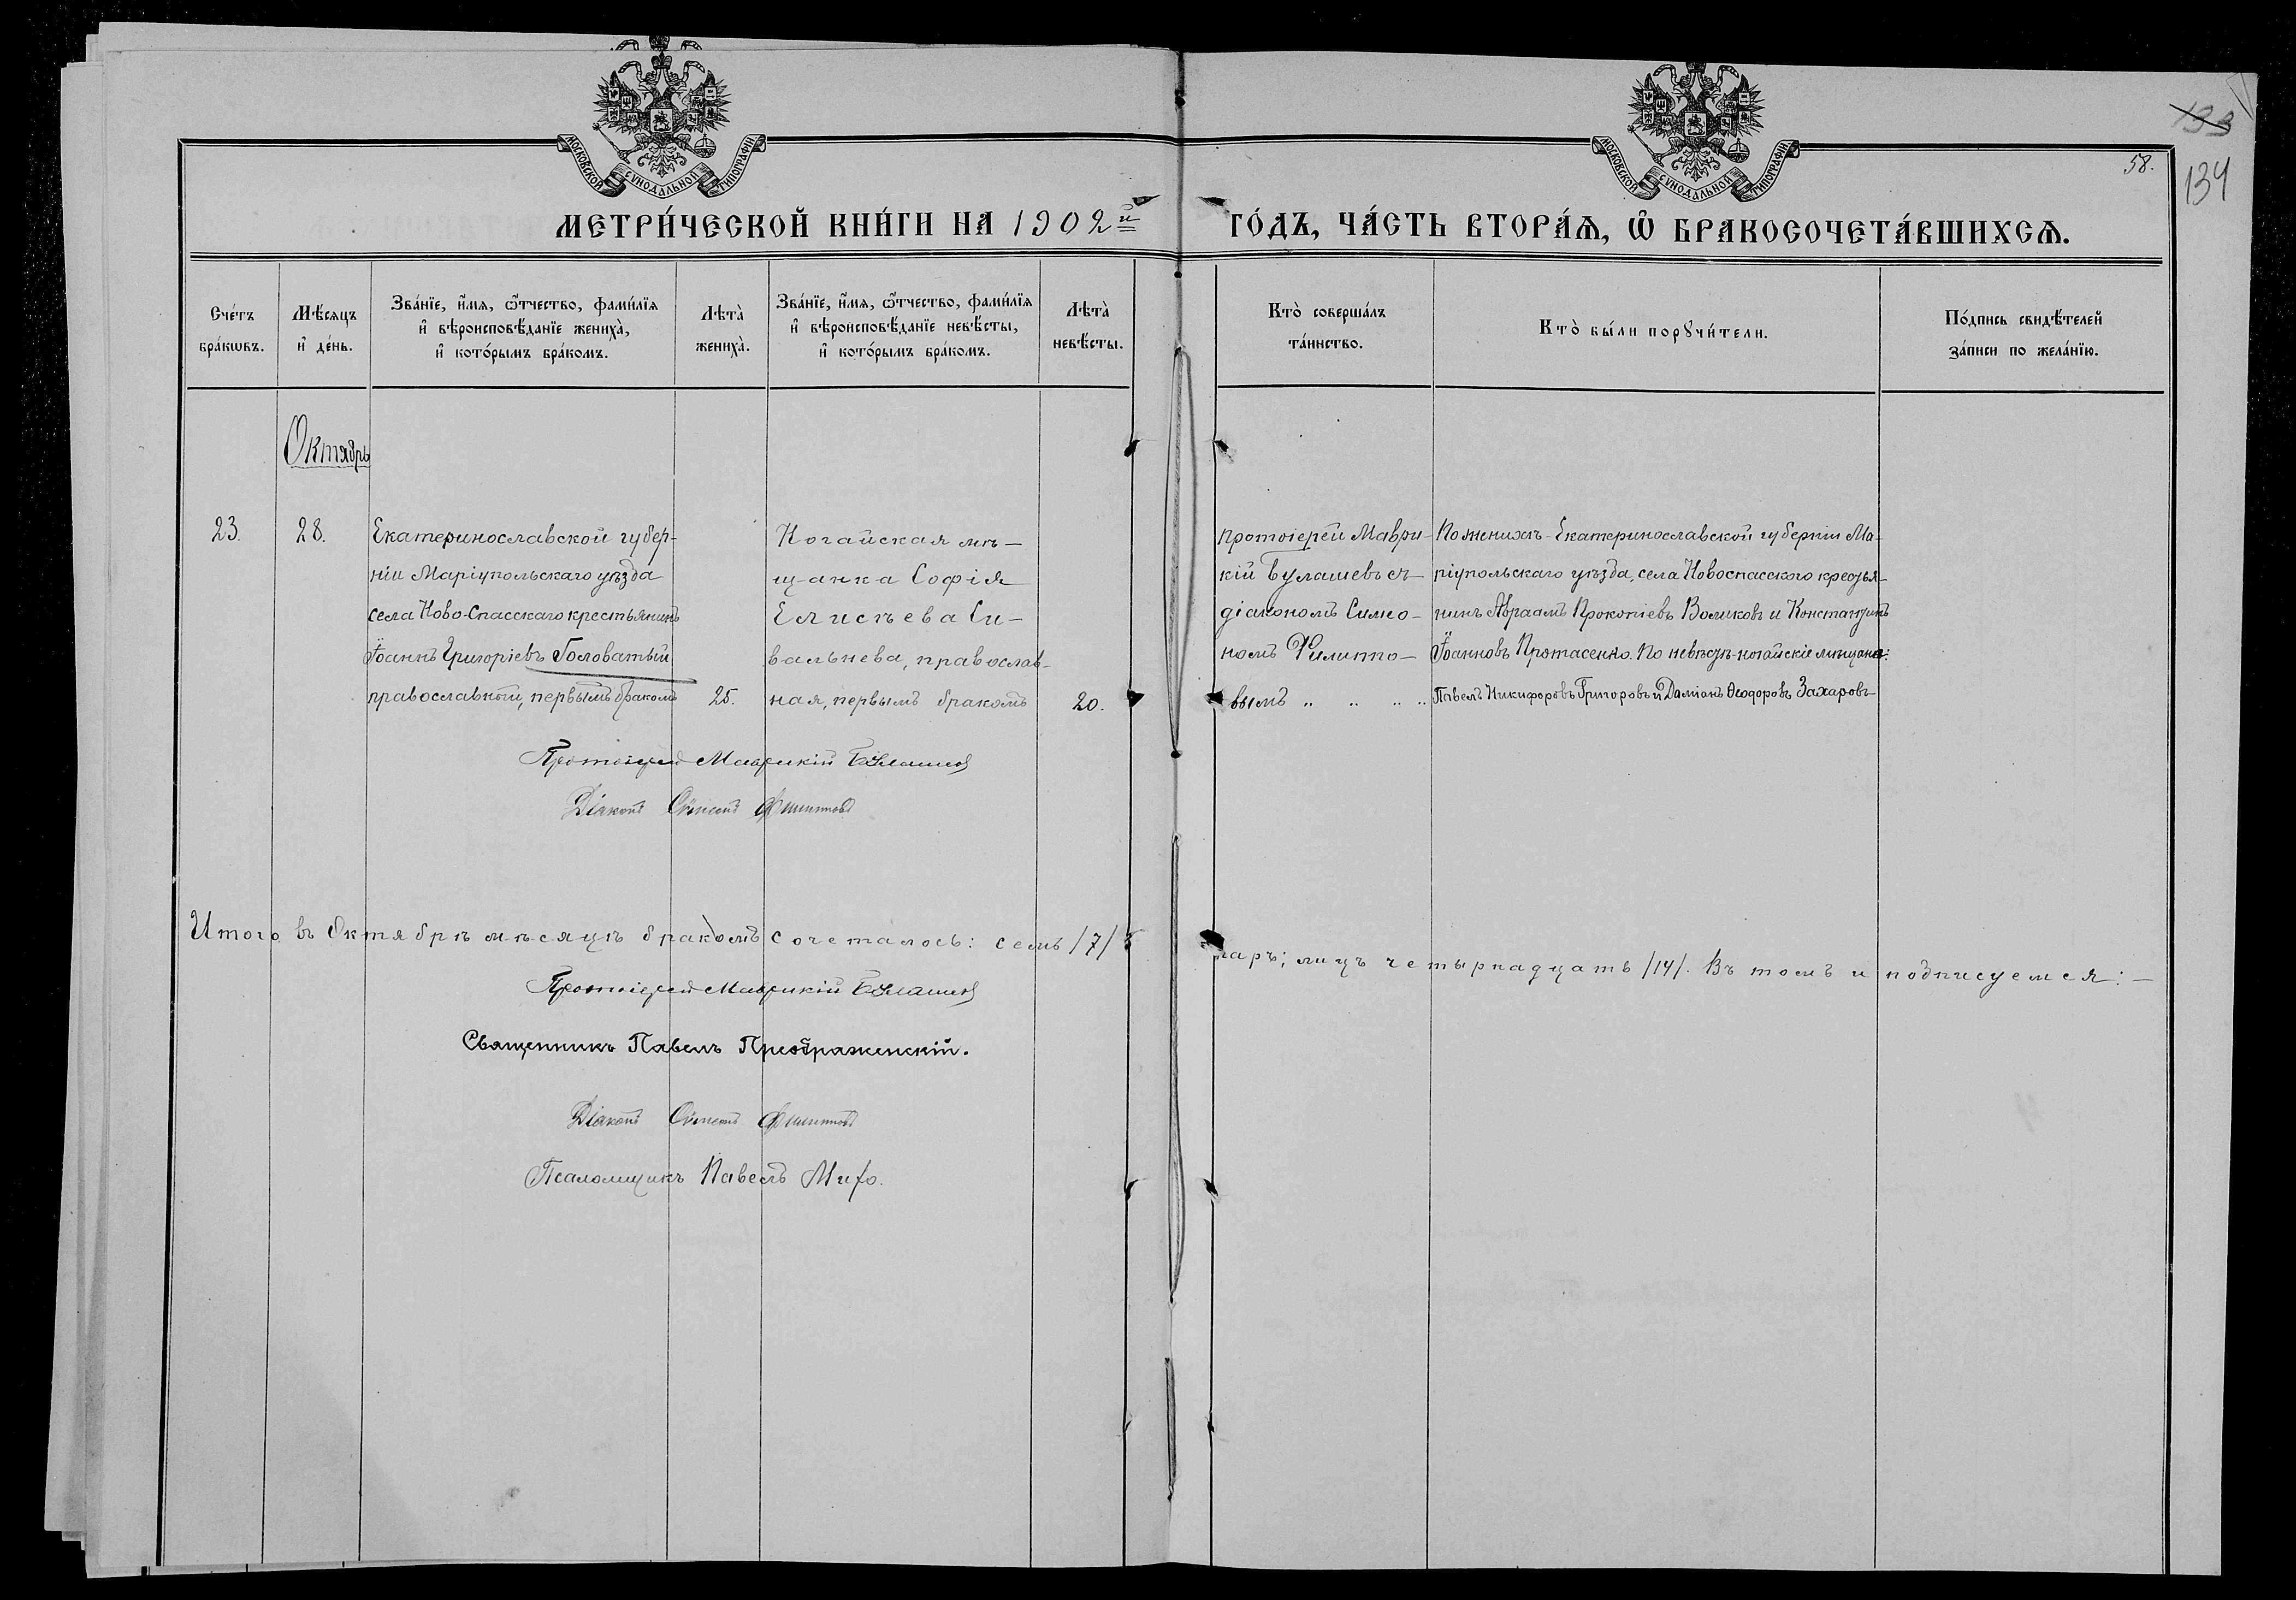 МОСКОВСКОЙ СѴНОДАЛЬНОЙ ТИПОГРАФІИ
МОСКОВСКОЙ СѴНОДАЛЬНОЙ ТИПОГРАФІИ
133
134
58.
МЕТРИ́ЧЕСКОЙ КНИ́ГИ НА 1902й ГО́ДЪ, ЧА́СТЬ ВТОРА́Ѧ, Ѡ҆ БРАКОСОЧЕТА́ВШИХСѦ.
Сче́тъ бра́кѡвъ.
Мѣ́сяцъ и҆ де́нь.
Зва́нїе, и҆́мя, ѻ҆́тчество, фами́лїя
и҆ вѣроисповѣ́данїе жениха̀,
и҆ кото́рымъ бра́комъ.
Лѣта̀ жениха̀.
Зва́нїе, и҆́мя, ѻ҆́тчество, фами́лїя
и҆ вѣроисповѣ́данїе невѣ́сты,
и҆ кото́рымъ бра́комъ.
Лѣта̀ невѣ́сты.
Кто̀ соверша́лъ та́инство.
Кто̀ бы́ли порꙋчи́тели.
По́дпись свидѣ́телей за́писи по жела́нїю.
Октябрь
23.
28.
Екатеринославской губер-
ніи Маріупольскаго уѣзда
села Ново-Спасскаго крестьянинъ
Іоаннъ Григоріевъ Головатый
православный, первымъ бракомъ
25.
Ногайская мѣ-
щанка Софія
Елисѣева Си-
вальнева, православ-
ная, первымъ бракомъ
20.
протоіерей Маври-
кій Булашевъ съ
діакономъ Симо-
номъ Филиппо-
вымъ „ „ „ „
По женихѣ - Екатеринославской губерніи Ма-
ріупольскаго уѣзда, села Новоспасского крестья-
нинъ Авраамъ Прокопіевъ Воликовъ и Константинъ
Іоанновъ Протасенко. По невѣстѣ - ногайскіе мѣщане:
Павелъ Никифоровъ Григоровъ и Даміанъ Ѳеодоровъ Захаровъ
Протоіерей Маврикій Булашевъ
Діаконъ Симеонъ Филипповъ
Итого въ Октябрѣ мѣсяцѣ бракомъ сочеталось: семь /7/ паръ; лицъ четырнадцать /14/. Въ томъ и подписуемся: —
Протоіерей Маврикій Булашевъ
Священникъ Павелъ Преображенскій.
Діаконъ Симеонъ Филипповъ
Псаломщикъ Павелъ